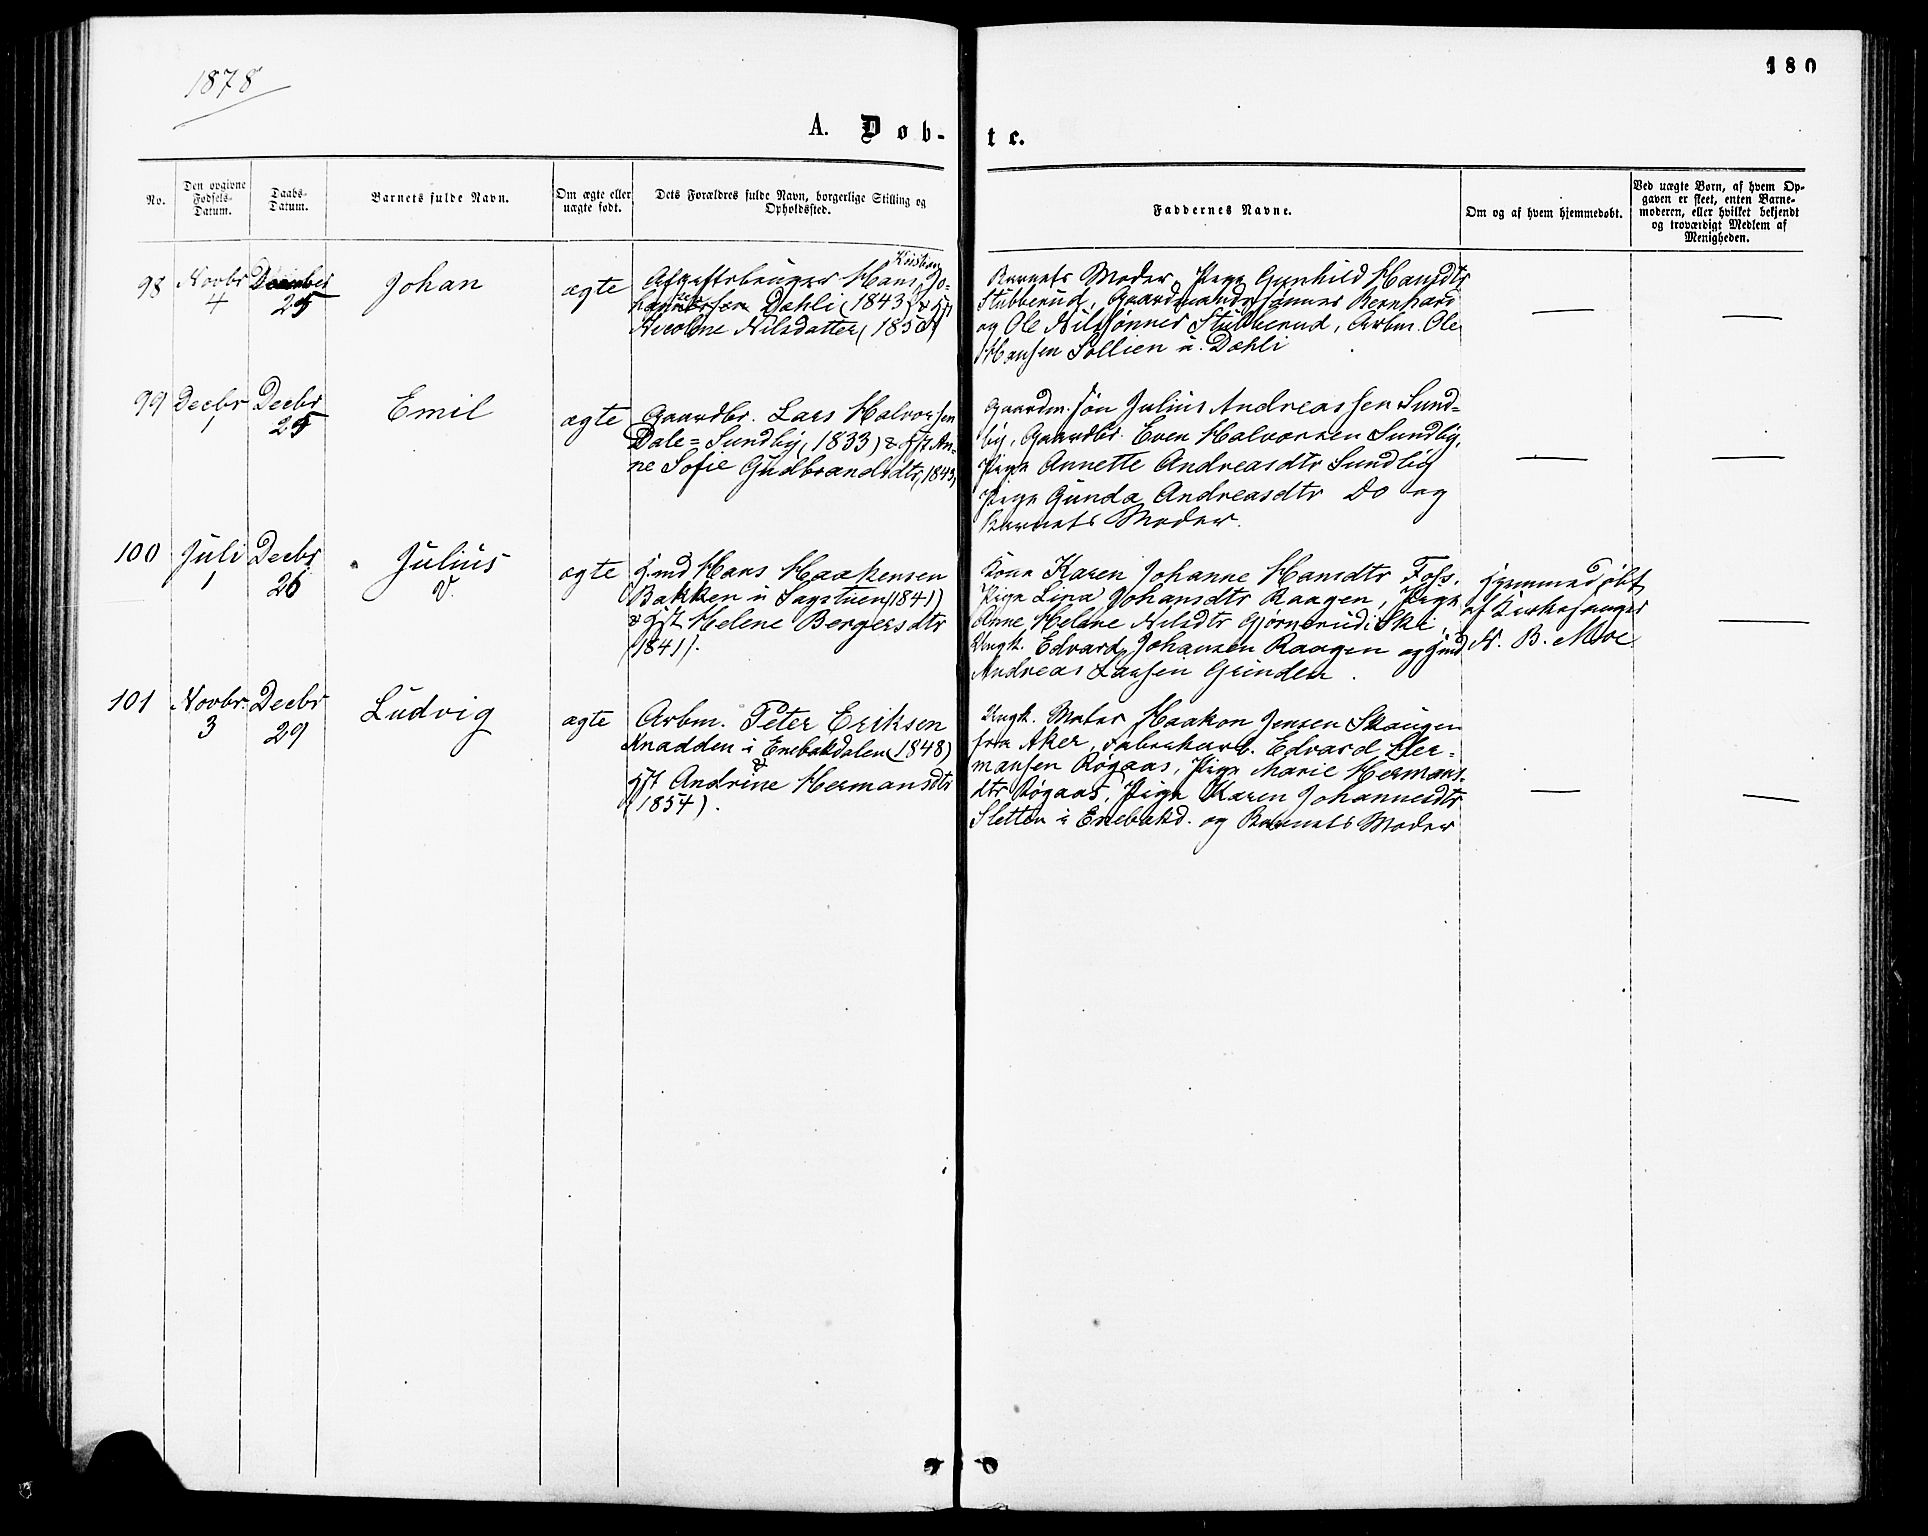 1878
180
A. Døb-
te.
No.
Den opgivne Fødsels-Datum.
Daabs-Datum.
Barnets fulde Navn.
Om ægte eller uægte født.
Dets Forældres fulde Navn, borgerlige Stilling og Opholdssted.
Faddernes Navne.
Om og af hvem hjemmedøbt.
Ved uægte Børn, af hvem Op-
gaven er skeet, enten Barne-
moderen, eller hvilket bekjendt
og troværdigt Medlem af
Menigheden.
98 Novbr 4
December 25
Johan
ægte
Kristian
Afgiftsbruger Hans Jo-
hannessen Dæhli (1843) & Hst
Nicoline Nilsdatter (1850)
Barnets Moder, Pige Gunhild Hansdtr
Stubberud, Gaardmandssønner Bernhard
og Ole Nilssønner Stubberud, Arbm. Ole
Hansen Sollien u. Dæhli
—
—
99 Decbr 1
Decbr 25
Emil
ægte
Gaardbr. Lars Halvorsen
Dale=Sundby, (1833) & Hst An-
ne Sofie Gudbrandsdtr, 1843,
Gaardm. søn Julius Andreassen Sund-
by, Gaardbr. Even Halvorsen Sundby,
Pige Annette Andreasdtr Sundby
Pige Gunda Andreasdtr Do og
Barnets Moder.
—
—
100 Juli 1
Decbr 26
Julius
V.
ægte
Hmd Hans Haakensen
Bakken u Sagstuen (1841)
& Hst Helene Bergersdtr
(1841).
Kone Karen Johanne Hansdtr Foss,
Pige Lina Johansdtr Raagen, Pige
Anne Helene Nilsdtr Gjørnerud i Ski,
Ungk. Edvard Johansen Raagen og Hmd
Andreas Larsen Grinden.
Hjemmedøbt
af Kirkesanger
N. B. Moe
—
101 Novbr. 3
Decbr 29
Ludvig
ægte
Arbm. Peter Eriksen
Knadden i Enebakdalen (1848)
&
Hst Andrine Hermansdtr
(1854).
Ungk. Haakon Jensen Skaugen
fra Aker, Fabrikarb. Edvard Her-
mansen Røgaas, Pige Marie Hermans-
dtr Røgaas, Pige Karen Johannesdtr
Sletten i Enebakd. og Barnets Moder
—
—